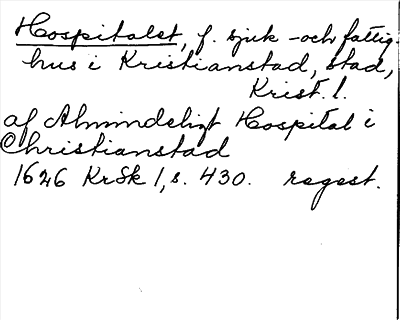 Hospitalet, f. sjuk- och fattig-
hus i Kristianstad, stad,
Krist. l.
af Almindeligt Hospital i
Christianstad
1626 KrSk 1, s. 430. regest.